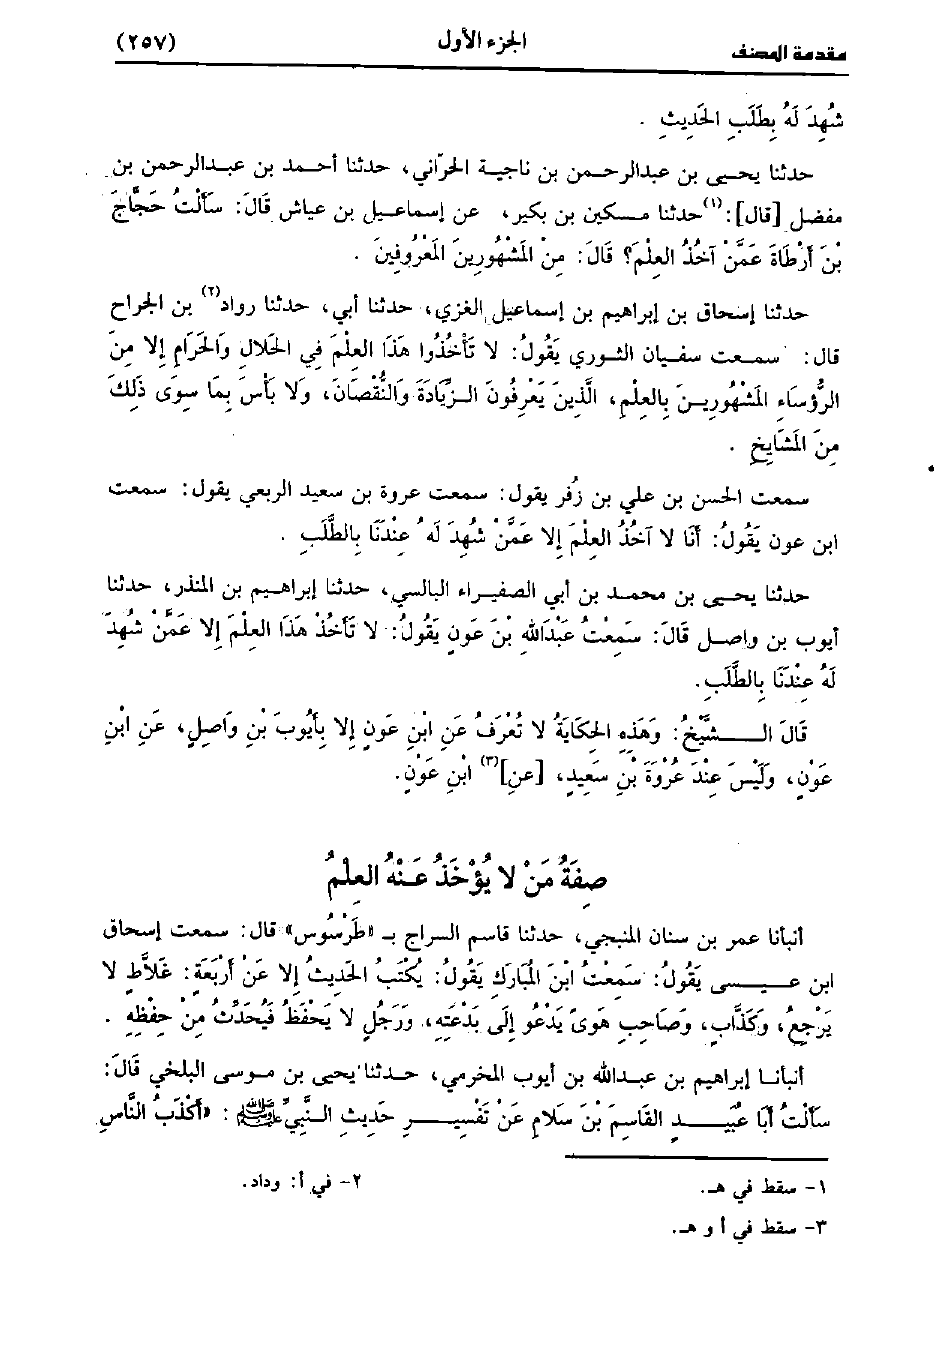 مقدمة المصنف الجزء الأول (٢٥٧)
شُهِدَ لَهُ بِطَلَبِ الحَدِيثِ .
حدثنا يحيى بن عبدالرحمن بن ناجية الحرّاني، حدثنا أحمد بن عبدالرحمن بن
مفضل [قال]:(١)حدثنا مسكين بن بكير، عن إسماعيل بن عياش قَالَ: سَأَلْتُ حَجَّاجَ
بْنَ أَرْطَاةَ عَمَّنْ آخُذُ العِلْمَ؟ قَالَ: مِنْ المَشْهُورِينَ المَعْرُوفِينَ .
حدثنا إسحاق بن إبراهيم بن إسماعيل الغزي، حدثنا أبي، حدثنا رواد(٢) بن الجراح
قال: سمعت سفيان الثوري يَقُولُ: لا تَأْخُذُوا هَذَا العِلْمَ فِي الحَلالِ وَالحَرَامِ إِلا مِنَ
الرُّؤَسَاءِ المَشْهُورِينَ بِالعِلْمِ، الَّذِينَ يَعْرِفُونَ الزِّيَادَةَ وَالنُّقْصَانَ، وَلا بَأْسَ بِمَا سِوَى ذَلِكَ
مِنَ المَشَايِخِ .
سمعت الحسن بن علي بن زُفَر يقول: سمعت عروة بن سعيد الربعي يقول: سمعت
ابن عون يَقُولُ: أَنَا لا آخُذُ العِلْمَ إِلا عَمَّنْ شُهِدَ لَهُ عِنْدَنَا بِالطَّلَبِ .
حدثنا يحيى بن محمد بن أبي الصفيراء البالسي، حدثنا إبراهيم بن المنذر، حدثنا
أيوب بن واصل قَالَ: سَمِعْتُ عَبْدَاللهِ بْنَ عَونٍ يَقُولُ: لا تَأْخُذْ هَذَا العِلْمَ إِلا عَمَّنْ شُهِدَ
لَهُ عِنْدَنَا بِالطَّلَبِ.
قَالَ الشَّيْخُ: وَهَذِهِ الحِكَايَةُ لا تُعْرَفُ عَنِ ابْنِ عَونٍ إِلا بِأَيُوبَ بْنِ وَاصِلٍ، عَنِ ابْنِ
عَوْنٍ، وَلَيْسَ عِنْدَ عُرْوَةَ بْنِ سَعِيدٍ، [عن](٣) ابْنِ عَوْنٍ.
صِفَةُ مَنْ لا يُؤْخَذُ عَنْهُ العِلْمُ
أنبأنا عمر بن سنان المنبجي، حدثنا قاسم السراج بـ «طَرْسُوس» قال: سمعت إسحاق
ابن عيسى يَقُولُ: سَمِعْتُ ابنَ المُبَارَكِ يَقُولُ: يُكْتَبُ الحَدِيثُ إِلا عَنْ أَرْبَعَةٍ: غَلاَّطٍ لا
يَرْجِعُ، وَكَذَّابٍ، وَصَاحِبِ هَوىً يَدْعُو إِلَى بِدْعَتِهِ، وَرَجُلٍ لا يَحْفَظُ فَيُحَدِّثُ مِنْ حِفْظِهِ .
أنبأنا إبراهيم بن عبدالله بن أيوب المخرمي، حدثنا يحيى بن موسى البلخي قَالَ:
سَأَلْتُ أَبَا عُبَيدٍ القَاسِمَ بْنَ سَلامٍ عَنْ تَفْسِيرِ حَدِيثِ النَّبِيِّ ﷺ : «أَكْذَبُ النَّاسِ
١- سقط في هـ. ٢- في أ: وداد.
٣- سقط في أ و هـ.